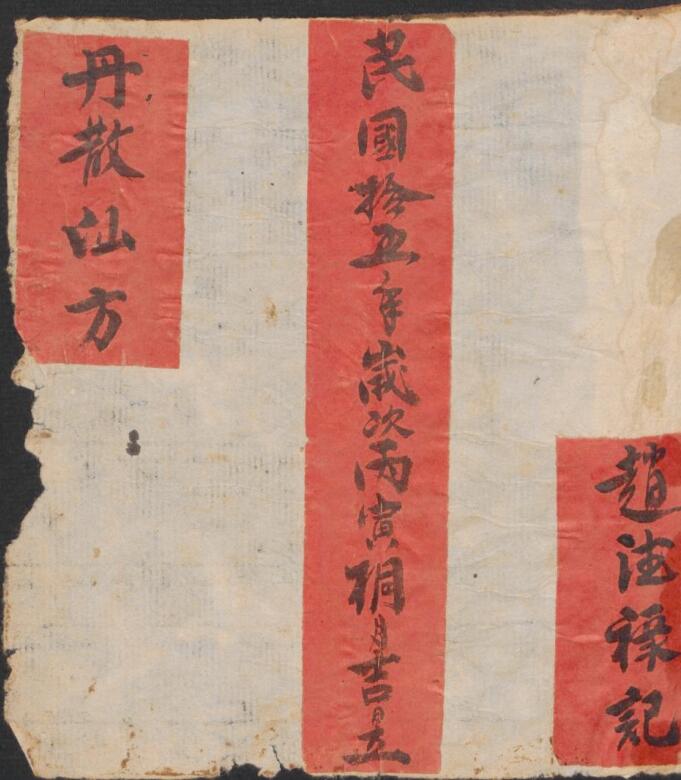 趙法祿記
民國拾五年歲次丙寅桐月吉日立
丹散仙方